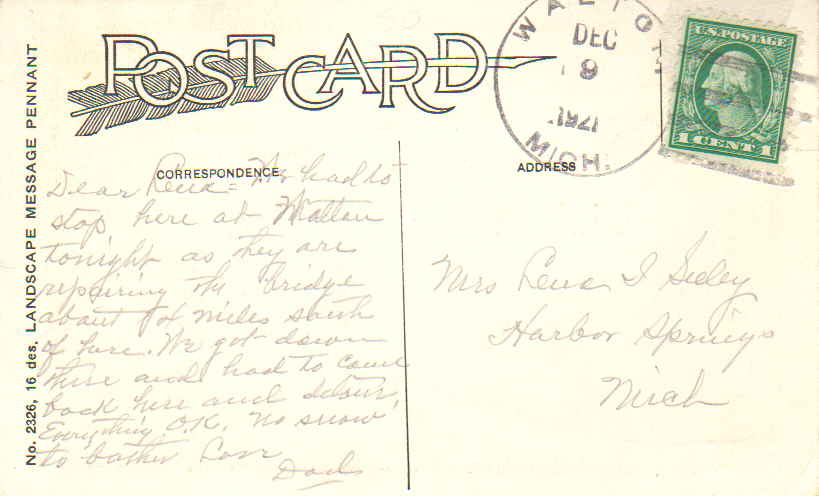 POST CARD
WALTON
DEC
9
MICH.
U.S. POSTAGE
1 CENT 1
CORRESPONDENCE
ADDRESS
No. 2326, 16 des. LANDSCAPE MESSAGE PENNANT
Dear Lena = We had to
stop here at Walton
tonight as they are
repairing the bridge
about miles south
of here. We got down
there and had to come
back here and detour,
Everything O.K. No snow
to bother Love
Dad
Mrs Lena I Seeley
Harbor Springs
Mich